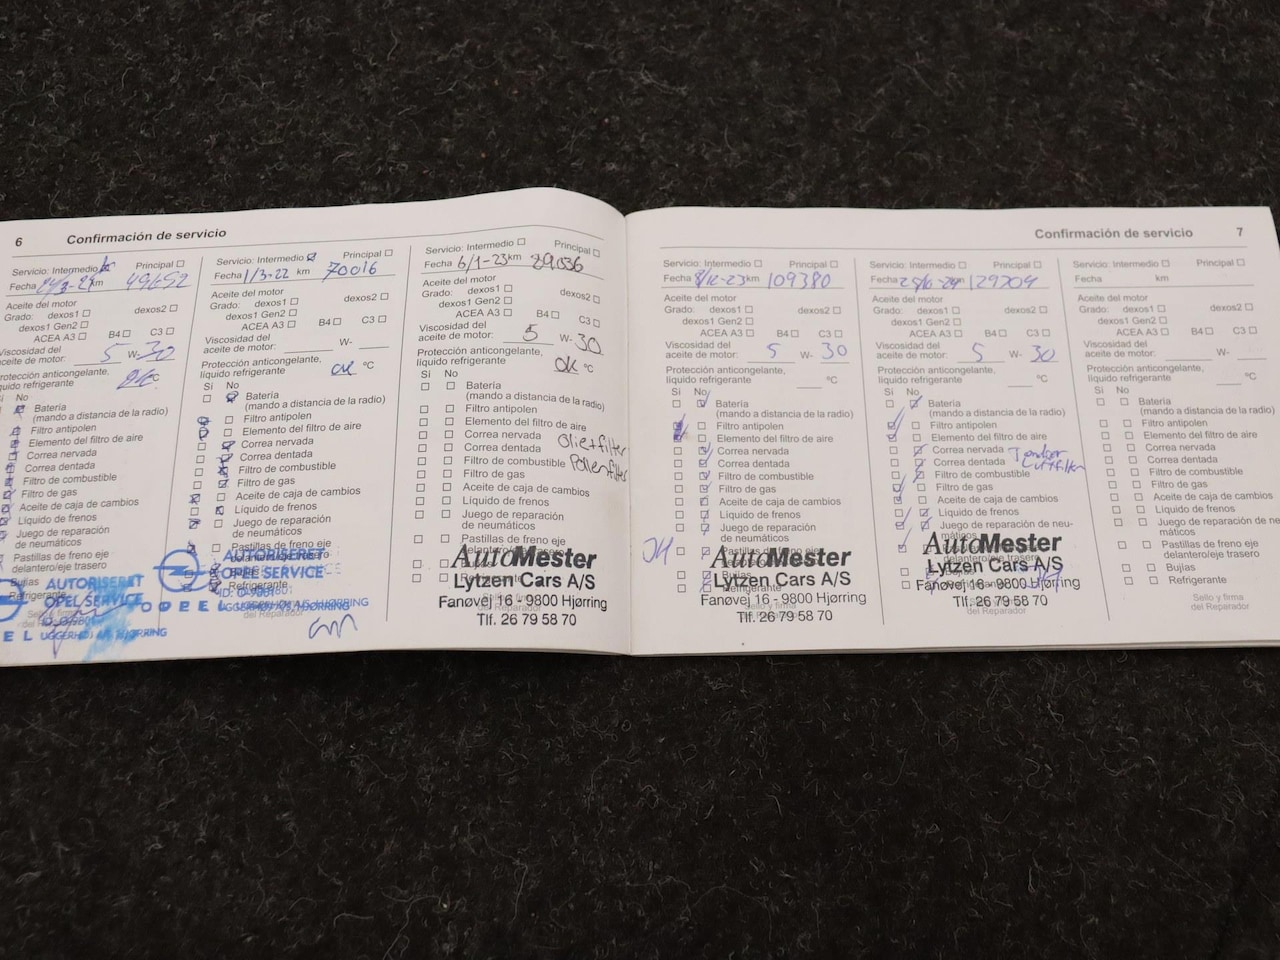 6 Confirmación de servicio
Servicio: Intermedio Principal
Fecha km
Aceite del motor
Grado: dexos1 dexos2
dexos1 Gen2
ACEA A3 B4 C3
Viscosidad del
aceite de motor: 5 W- 30
Protección anticongelante,
líquido refrigerante °C
Sí No
Batería
(mando a distancia de la radio)
Filtro antipolen
Elemento del filtro de aire
Correa nervada
Correa dentada
Filtro de combustible
Filtro de gas
Aceite de caja de cambios
Líquido de frenos
Juego de reparación
de neumáticos
Pastillas de freno eje
delantero/eje trasero
Bujías
Refrigerante
AUTORISERET
OPEL SERVICE
Servicio: Intermedio Principal
Fecha 1/3-22 km 70016
Aceite del motor
Grado: dexos1 dexos2
dexos1 Gen2
ACEA A3 B4 C3
Viscosidad del
aceite de motor: W-
Protección anticongelante,
líquido refrigerante ok °C
Sí No
Batería
(mando a distancia de la radio)
Filtro antipolen
Elemento del filtro de aire
Correa nervada
Correa dentada
Filtro de combustible
Filtro de gas
Aceite de caja de cambios
Líquido de frenos
Juego de reparación
de neumáticos
Pastillas de freno eje
AUTORISERET
OPEL SERVICE
OPEL
Servicio: Intermedio Principal
Fecha 6/1-23 km 89.036
Aceite del motor
Grado: dexos1 dexos2
dexos1 Gen2
ACEA A3 B4 C3
Viscosidad del
aceite de motor: 5 W- 30
Protección anticongelante,
líquido refrigerante ok °C
Sí No
Batería
(mando a distancia de la radio)
Filtro antipolen
Elemento del filtro de aire
Correa nervada Olie+filter
Correa dentada
Filtro de combustible Pollenfilter
Filtro de gas
Aceite de caja de cambios
Líquido de frenos
Juego de reparación
de neumáticos
Pastillas de freno eje
AutoMester
Lytzen Cars A/S
Fanøvej 16 - 9800 Hjørring
Tlf. 26 79 58 70
Confirmación de servicio 7
Servicio: Intermedio Principal
Fecha 8/12-23 km 109380
Aceite del motor
Grado: dexos1 dexos2
dexos1 Gen2
ACEA A3 B4 C3
Viscosidad del
aceite de motor: 5 W- 30
Protección anticongelante,
líquido refrigerante °C
Sí No
Batería
(mando a distancia de la radio)
Filtro antipolen
Elemento del filtro de aire
Correa nervada
Correa dentada
Filtro de combustible
Filtro de gas
Aceite de caja de cambios
Líquido de frenos
Juego de reparación
de neumáticos
Pastillas de freno eje
AutoMester
Lytzen Cars A/S
Fanøvej 16 - 9800 Hjørring
Sello y firma
del Reparador
Tlf. 26 79 58 70
Servicio: Intermedio Principal
Fecha km
Aceite del motor
Grado: dexos1 dexos2
dexos1 Gen2
ACEA A3 B4 C3
Viscosidad del
aceite de motor: 5 W- 30
Protección anticongelante,
líquido refrigerante °C
Sí No
Batería
(mando a distancia de la radio)
Filtro antipolen
Elemento del filtro de aire
Correa nervada
Correa dentada Luftfilter
Filtro de combustible
Filtro de gas
Aceite de caja de cambios
Líquido de frenos
Juego de reparación de neu-
máticos
AutoMester
Lytzen Cars A/S
Fanøvej 16 - 9800 Hjørring
Tlf. 26 79 58 70
Servicio: Intermedio Principal
Fecha km
Aceite del motor
Grado: dexos1 dexos2
dexos1 Gen2
ACEA A3 B4 C3
Viscosidad del
aceite de motor: W-
Protección anticongelante,
líquido refrigerante °C
Sí No
Batería
(mando a distancia de la radio)
Filtro antipolen
Elemento del filtro de aire
Correa nervada
Correa dentada
Filtro de combustible
Filtro de gas
Aceite de caja de cambios
Líquido de frenos
Juego de reparación
de neumáticos
Pastillas de freno eje
delantero/eje trasero
Bujías
Refrigerante
Sello y firma
del Reparador